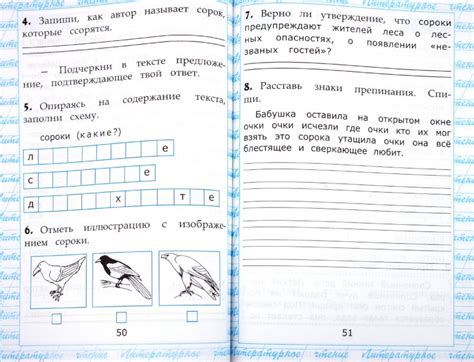 4. Запиши, как автор называет сорок,
которые ссорятся.
— Подчеркни в тексте предложе-
ние, подтверждающее твой ответ.
5. Опираясь на содержание текста,
заполни схему.
сороки (какие?)
л е
с е
д х т е
6. Отметь иллюстрацию с изображе-
нием сороки.
50
7. Верно ли утверждение, что сороки
предупреждают жителей леса о лес-
ных опасностях, о появлении «не-
званых гостей»?
8. Расставь знаки препинания. Спи-
ши.
Бабушка оставила на открытом окне
очки очки исчезли где очки кто их мог
взять это сорока утащила очки она всё
блестящее и сверкающее любит.
51
Литературное
чтение
Литературное
чтение
Литературное